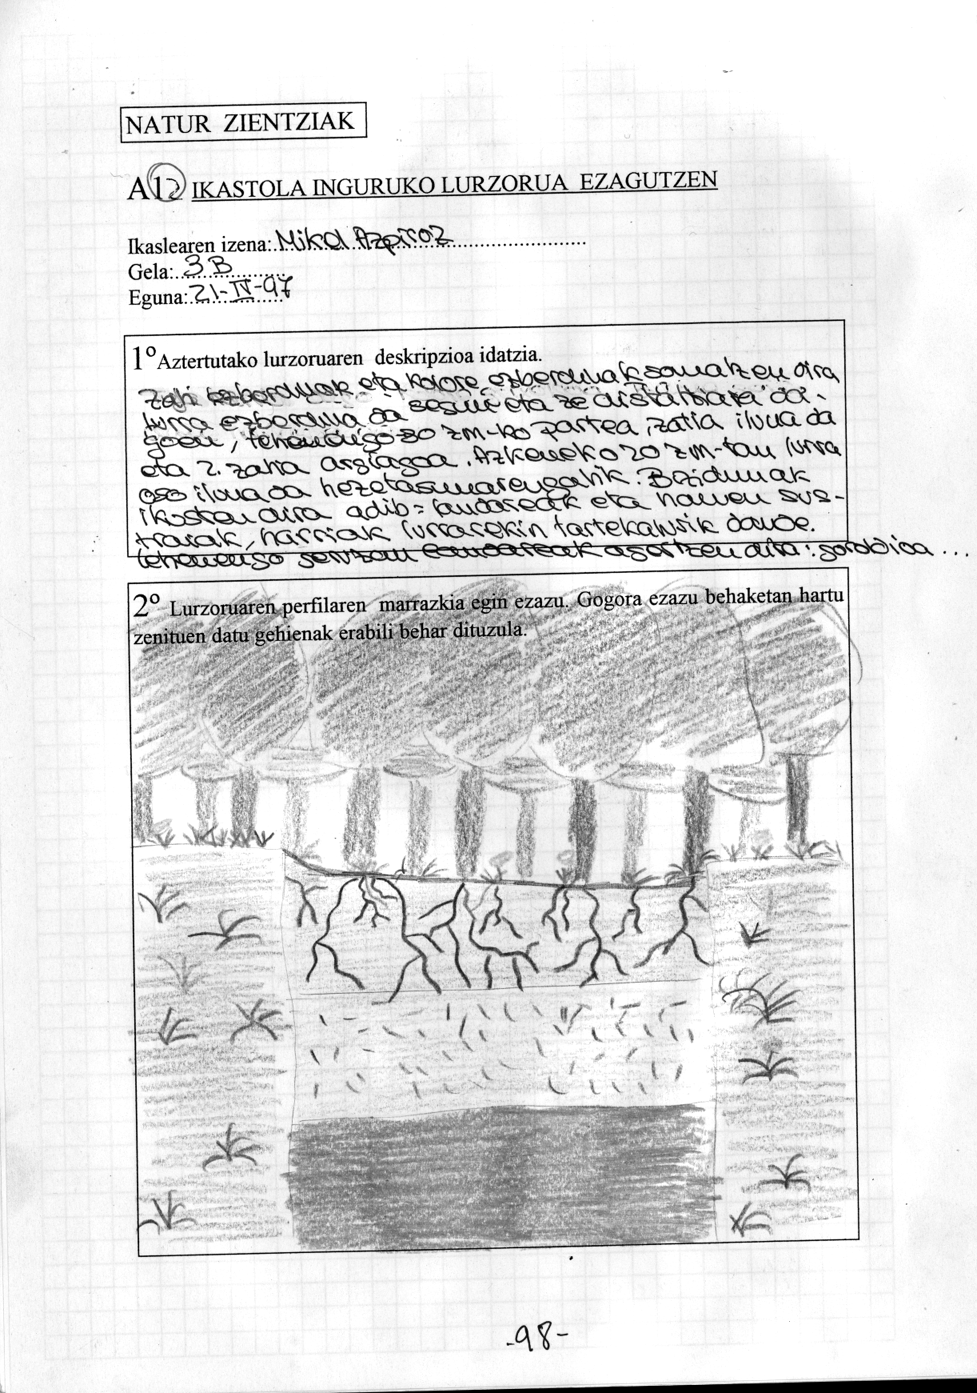 NATUR ZIENTZIAK
A12 IKASTOLA INGURUKO LURZORUA EZAGUTZEN
Ikaslearen izena: Mikel Azpiroz
Gela: 3B
Eguna: 21-IV-97
1º Aztertutako lurzoruaren deskripzioa idatzia.
Zati ezberdinak eta kolore ezberdinak somatzen dira
lurra ezberdina da segun eta ze distantziara da-
goen, lehendiengo 30 zm-ko partea, zatia iluna da
eta 2. zatia argiagoa. Azkeneko 20 zm-tan lurra
oso iluna da hezetasunarengatik. Bizidunak
ikusten dira adib= landareak eta hauen sus-
traiak, harriak lurrarekin tartekaturik daude.
lehenengo landareak agertzen dira: goroldioa ...
2º Lurzoruaren perfilaren marrazkia egin ezazu. Gogora ezazu behaketan hartu
zenituen datu gehienak erabili behar dituzula.
-98-